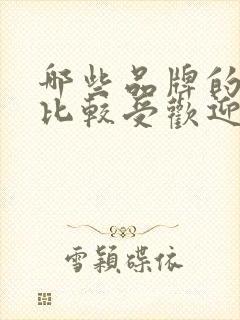 哪些品牌的
比較受歡迎
雪穎碟依